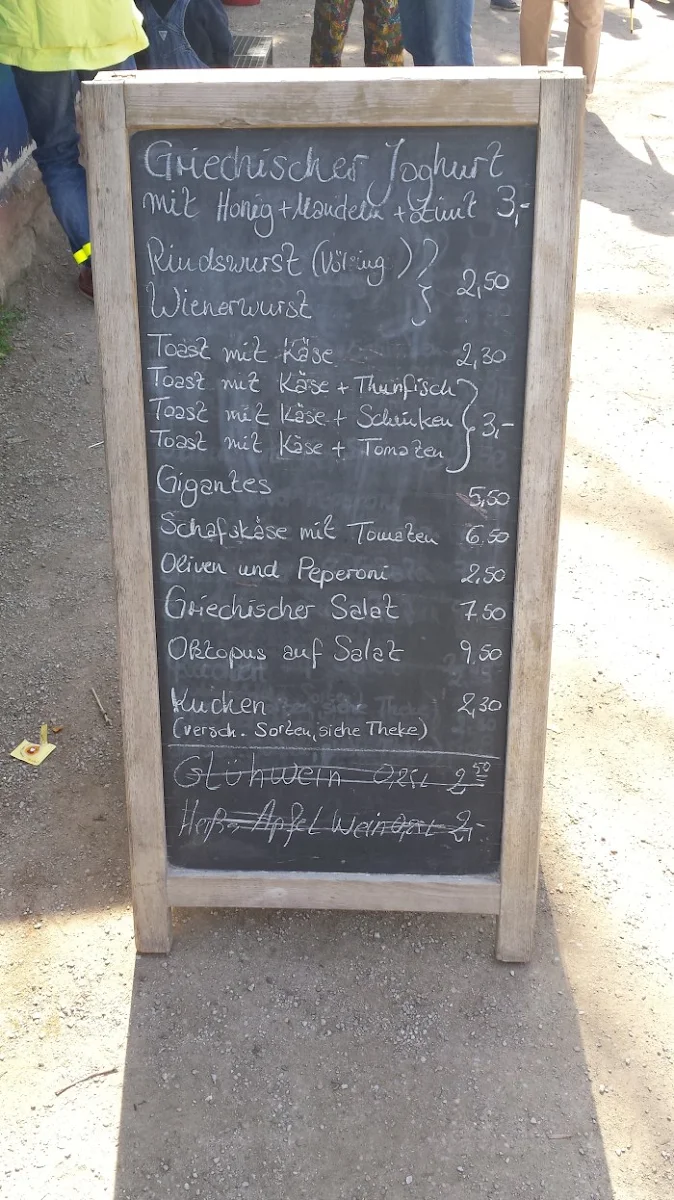 Griechischer Joghurt
mit Honig + Mandeln + Zimt 3,-
Rindswurst (Völsing)
Wienerwurst 2,50
Toast mit Käse 2,30
Toast mit Käse + Thunfisch
Toast mit Käse + Schinken 3,-
Toast mit Käse + Tomaten
Gigantes 5,50
Schafskäse mit Tomaten 6.50
Oliven und Peperoni 2,50
Griechischer Salat 7.50
Oktopus auf Salat 9,50
Kuchen 2,30
(versch. Sorten, siehe Theke)
Glühwein 0,25L 2,50
Heißer Apfel Wein 0,25L 2,-